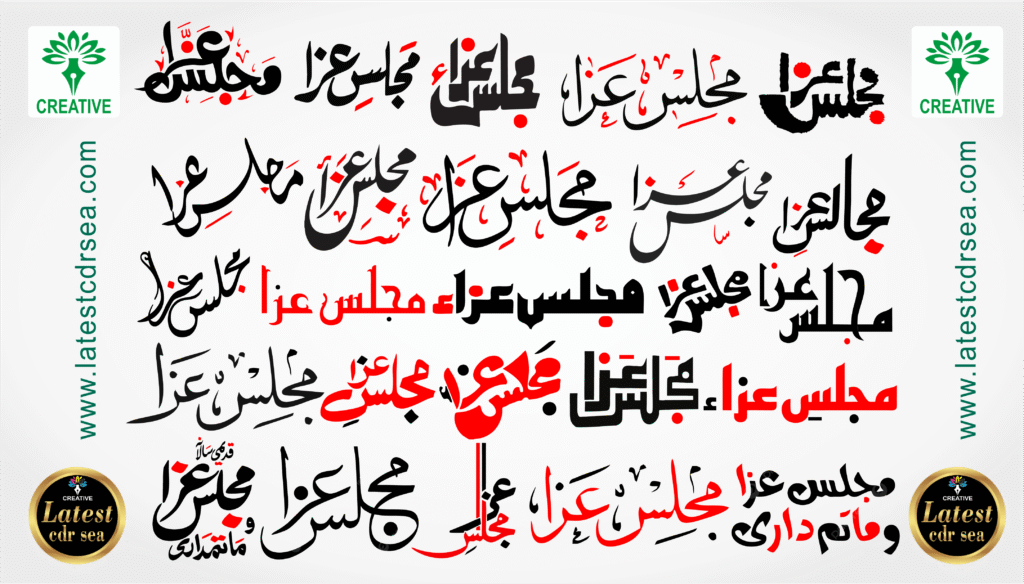 CREATIVE
CREATIVE
www.latestcdrsea.com
www.latestcdrsea.com
مجلس عزا
مجلس عزا
مجلس عزاء
مجلس عزا
مجلس عزا
مجالس عزا
مجلس عزا
مجلس عزا
مجلس عزا
مجلس عزا
مجلس عزا
مجلس عزا
مجلس عزاء
مجلس عزا
مجلس عزا
مجلس عزاء
مجلس عزا
مجلس عزا
مجلس عزا
مجلس عزا
مجلس عزا
و ماتم داری
مجلس عزا
مجلس عزا
مجلس عزا
قدیمی سالانہ
مجلس عزا
و ماتمداری
CREATIVE
Latest
cdr sea
CREATIVE
Latest
cdr sea